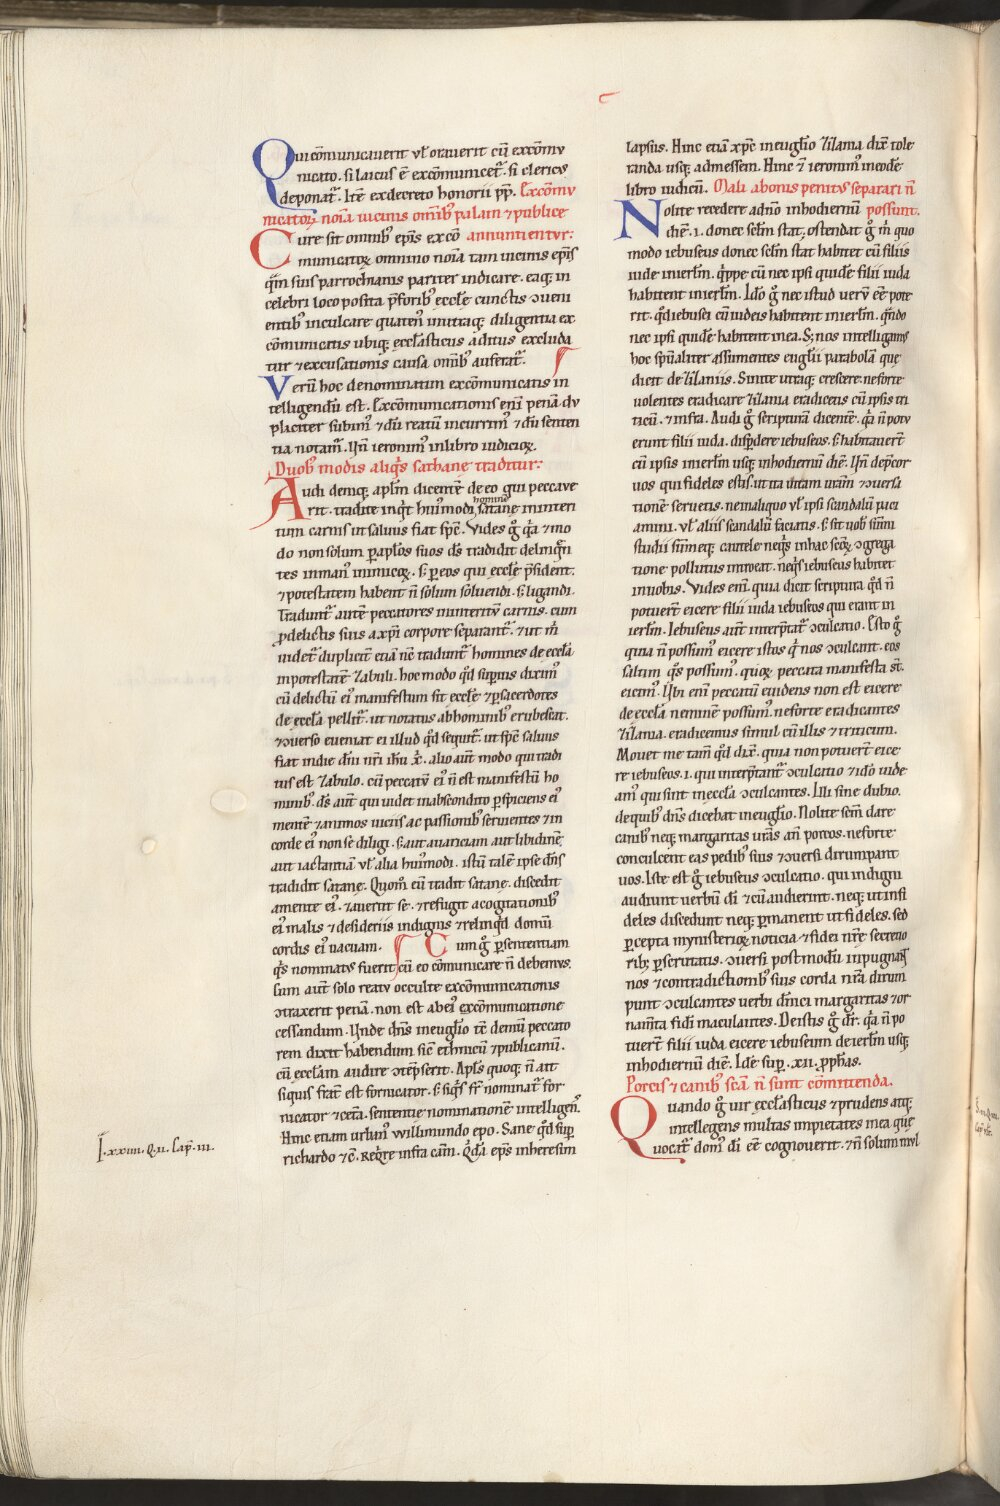 Qui cōmunicauerit ūl orauerit cū excōmu
nicato. si laicus ē excōmunicet᷑. si clericus
deponat᷑. Itē ex decreto honorii pp̄. Excōmu
nicatoꝝ noīa uicinis om̄ibꝰ palam ⁊ publice
Cure sit omnibꝰ ep̄is exco annuntientur:
municatoꝝ omnino noīa tam uicinis ep̄is
q̄m suis parrochianis pariter indicare. eaq; in
celebri loco posita p̄ foribꝰ eccl̄e cunctis ↄueni
entibꝰ inculcare quatenꝰ in utraq; diligentia ex
cōmunicatis ubiq; eccl̄asticus aditus excluda
tur ⁊ excusationis causa om̄ibꝰ auferat᷑.
Verū hoc de nominatim excōmunicatis in
telligendū est. Excōmunicationis enī penā du
pliciter subimꝰ ⁊ dū reatū incurrimꝰ ⁊ dū senten
tia notam᷑. Vn̄ ieronimꝰ in libro iudicioꝝ.
Duobꝰ modis aliq̄s sathane traditur:
Audi deniq; ap̄lm dicentē de eo qui peccaue
rit. tradite inq̄t huiꝰmodi hominē satane in interi
tum carnis ut saluus fiat sp̄c. Vides g̊ q̄a ⁊ mo
do non solum ꝑ ap̄los suos dꝰ tradidit delinq̄n
tes in manꝰ inimicoꝝ. ꞩ ꝑ eos qui eccl̄e p̄sident.
⁊ potestatem habent n̄ solum soluendi. ꞩ ligandi.
Tradunt᷑ autē peccatores in interitū carnis. cum
ꝓ delictis suis a xp̄i corpore separant᷑. ⁊ ut m̄
uidet᷑ dupliciter etiā nc̄ tradunt᷑ homines de eccl̄a
in potestatē zabuli. hoc modo qd̄ supꝰ diximꝰ
cū delictū eiꝰ manifestum sit eccl̄e ⁊ ꝑ sacerdotes
de eccl̄a pellit᷑. ut notatus ab hominibꝰ erubescat.
⁊ ↄuerso eueniat ei illud qd̄ sequit᷑. ut sp̄c saluus
fiat in die dn̄i nr̄i ihū x̄. alio aūt modo qui tradi
tus est zabulo. cū peccatū eiꝰ n̄ est manifestū ho
minibꝰ. dꝰ aūt qui uidet in abscondito ꝑspiciens eiꝰ
mentē ⁊ animos uiciis ac passionibꝰ seruientes ⁊ in
corde eiꝰ non se diligi. ꞩ aut auariciam aut libidinē
aut iactantiā ūl alia huiꝰmodi. istū talē ipse dn̄s
tradidit satane. Quom̊ eū tradit satane. discedit
a mente eiꝰ. ⁊ auertit se. ⁊ refugit a cogitationibꝰ
eiꝰ malis ⁊ desideriis indignis ⁊ relinq̄d domū
cordis eiꝰ uacuam. Cum g̊ ꝑ sententiam
q̄s nominatus fuerit cū eo cōmunicare n̄ debemus.
sum aūt solo reatu occulte excōmunicationis
ↄtraxerit penā. non est ab eiꝰ excōmunicatione
cessandum. Vnde dn̄s in euuglīo tē demū peccato
rem dixit habendum sic̄ ethnicū ⁊ publicanū.
cū eccl̄am audire ↄtēpserit. Ap̄ls quoq; n̄ ait
siquis frāt est fornicator. ꞩ siq̄s fr̄ nominat᷑ for
nicator ⁊ cetā. sententie nominationē intelligenꝰ.
Hinc etiam urbanꝰ willimundo ep̄o. Sane qd̄ suꝑ
richardo ⁊ c̄. Req̄re infra cam̄. Qd̄a ep̄s in heresim
lapsus. Hinc etiā xp̄c in euuglīo zizania dix̄ tole
randa usq; ad messem. Hinc ⁊ ieronimꝰ in eodē
libro iudicū. Mali a bonis penitus separari n̄
Nolite recedere a dn̄o in hodiernū possunt.
diē. i. donec sc̄lm stat. ostendat g̊ m̄ quo
modo iebuseus donec sc̄lm stat habitet cū filiis
iude in ierl̄m. q̄ppe cū nec ipsi quidē filii iuda
habitent in ierl̄m. Id̊o g̊ nec istud uerū eē pote
rit. qd̄ iebusei cū iudeis habitent in ierl̄m. q̄ndo
nec ipsi quidē habitent in ea. S; nos intelligamꝰ
hoc spūaliter assumentes euglīi parabolā que
dicit de zizaniis. Sinite utraq; crescere ne forte
uolentes eradicare zizania eradicetis cū ipsis tri
ticū. ⁊ infra. Audi g̊ scripturā dicentē. q̄a n̄ potu
erunt filii iuda. disp̄dere iebuseos. ꞩ habitauert̄
cū ipsis in ierl̄m usq; in hodiernū diē. Vn̄ dep̄cor
uos qui fideles estis. ut ita uitam ur̄am ⁊ ↄuersa
tionē seruetis. ne in aliquo ūl ipsi scandalū paci
amini. ūl aliis scandalū faciatis. ꞩ sit uobꝰ sūmi
studii sūmeq; cautele neq̄s in hac sc̄oꝝ ↄgrega
tione pollutus introeat. neq̄s iebuseus habitet
in uobis. Vides enī quia dicit scriptura qd̄ n̄
potuert̄ eicere filii iuda iebuseos qui erant in
ierl̄m. Iebuseus aūt interp̄tat᷑ ↄculcatio. Esto g̊
quia n̄ possumꝰ eicere istos q̄ nos ↄculcant. eos
saltim q̄s possumꝰ. quoꝝ peccata manifesta st̄.
eicimꝰ. Vbi enī peccatū euidens non est eicere
de eccl̄a neminē possumꝰ. ne forte eradicantes
zizania. eradicemus simul cū illis ⁊ triticum.
Mouet me tam̄ qd̄ dix̄. quia non potuert̄ eice
re iebuseos. i. qui interp̄tant᷑ ↄculcatio ⁊ id̊o uide
amꝰ qui sint in eccl̄a ↄculcantes. Illi sine dubio.
de quibꝰ dn̄s dicebat in euglīo. Nolite scm̄ dare
canibꝰ neq; margaritas ur̄as an̄ porcos. ne forte
conculcent eas pedibꝰ suis ⁊ ↄuersi dirumpant
uos. Iste est g̊ iebuseus ↄculcatio. qui indigni
audiunt uerbū di ⁊ cū audierint. neq; ut infi
deles discedunt neq; ꝑmanent ut fideles. sed
ꝑcepta mynisterioꝝ noticia ⁊ fidei nr̄e secreto
ribꝰ ꝑscrutatis. ↄuersi postmodū inpugnant
nos ⁊ contradictionibꝰ suis corda nr̄a dirum
punt ↄculcantes uerbi dn̄ici margaritas ⁊ or
nam̄ta fidi maculantes. De istis g̊ dr̄. q̄a n̄ po
tuert̄ filii iuda eicere iebuseum de ierl̄m usq;
in hodiernū diē. Idē suꝑ. xii. ꝓphās.
Porcis ⁊ canibꝰ scā n̄ sunt cōmittenda.
Quando g̊ uir eccl̄asticus ⁊ prudens atq;
intellegens multas impietates in ea que
uocat᷑ domꝰ di eē cognouerit. ⁊ n̄ solum mul
I. xxiiii. Q. ii. Cap̄. iii.